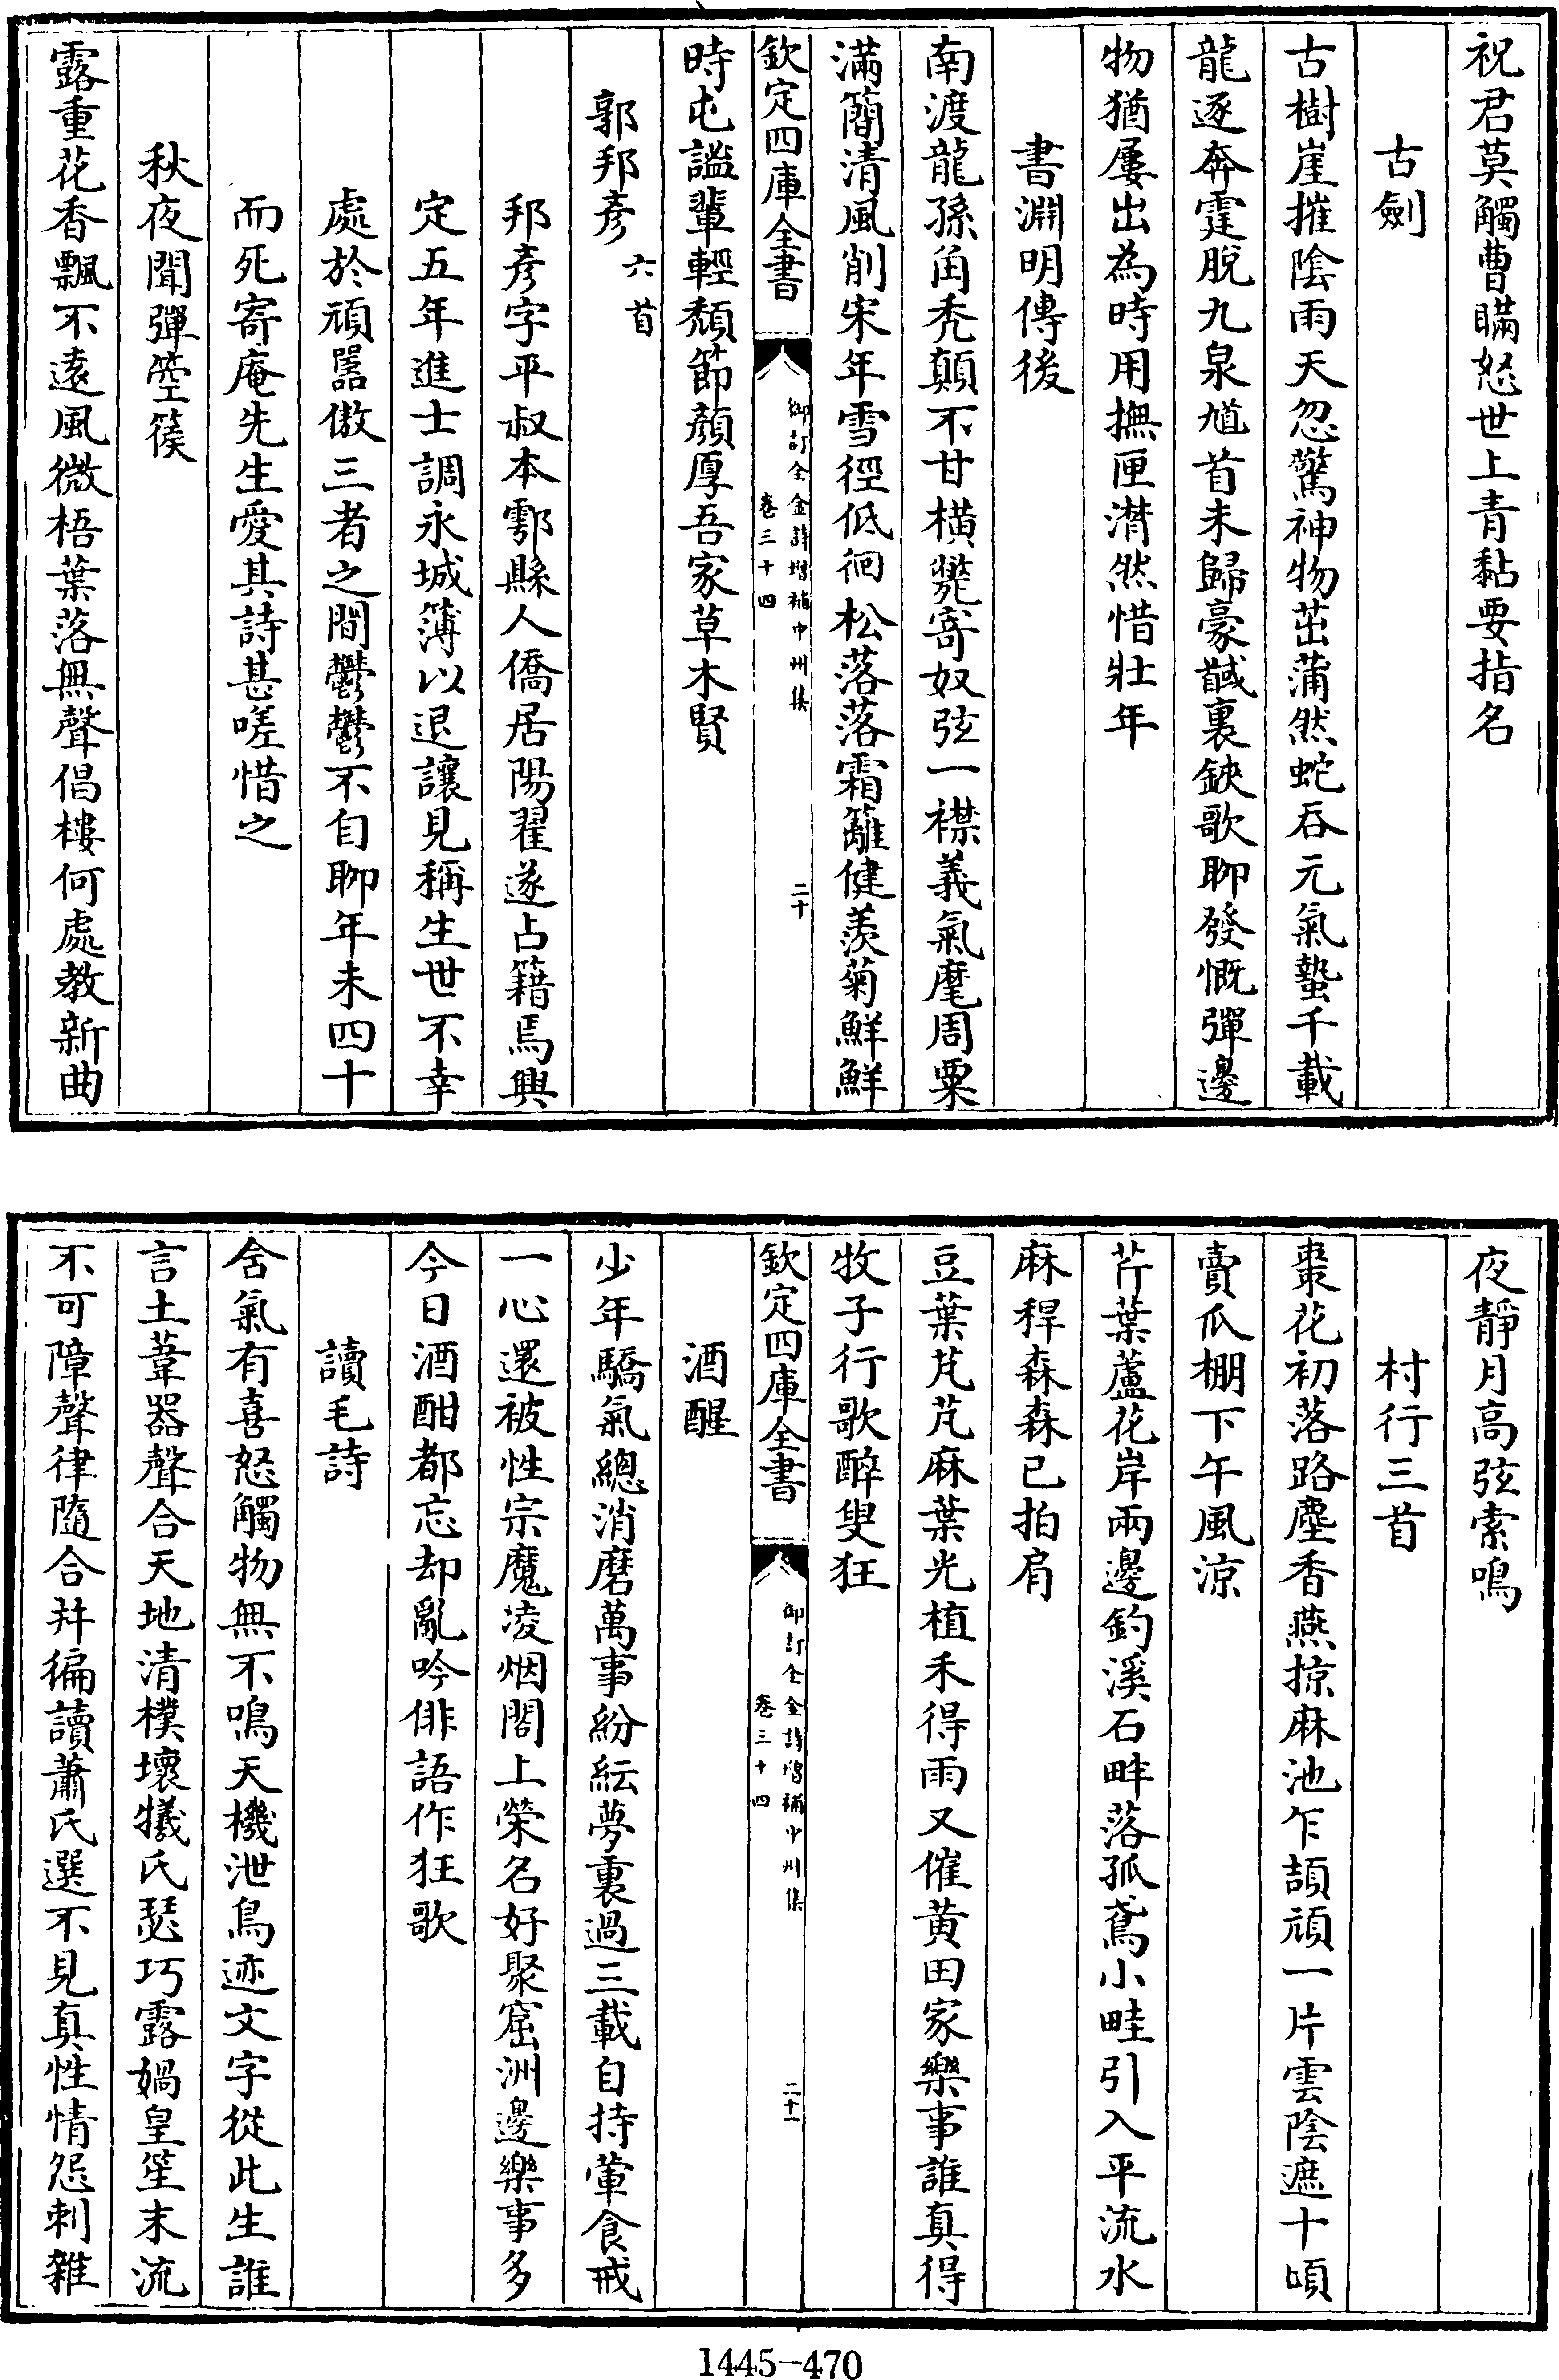 祝君莫觸曹瞞怒世上青黏要指名
古劍
古樹崖摧陰雨天忽驚神物茁蒲然蛇吞元氣蟄千載
龍逐奔霆脫九泉馗首未歸豪馘裏鋏歌聊發慨彈邊
物猶屢出為時用撫匣潸然惜壯年
書淵明傳後
南渡龍孫角秃顛不甘橫斃寄奴弦一襟義氣麾周粟
滿簡清風削宋年雪徑低徊松落落霜籬健羨菊鮮鮮
欽定四庫全書
御訂全金詩增補中州集
卷三十四
二十
時屯謐輩輕頹節顏厚吾家草木賢
郭邦彥六首
邦彥字平叔本鄠縣人僑居陽翟遂占籍焉興
定五年進士調永城簿以退讓見稱生世不幸
處於頑嚚傲三者之間鬱鬱不自聊年未四十
而死寄庵先生愛其詩甚嗟惜之
秋夜聞彈箜篌
露重花香飄不遠風微梧葉落無聲倡樓何處教新曲
夜靜月高弦索鳴
村行三首
棗花初落路塵香燕掠麻池乍頡頏一片雲陰遮十頃
賣瓜棚下午風涼
芹葉蘆花岸兩邊釣溪石畔落孤鳶小畦引入平流水
麻稈森森已拍肩
豆葉芃芃麻葉光植禾得雨又催黃田家樂事誰真得
牧子行歌醉叟狂
欽定四庫全書
御訂全金詩增補中州集
卷三十四
二十一
酒醒
少年驕氣總消磨萬事紛紜夢裏過三載自持葷食戒
一心還被性宗魔凌烟閣上榮名好聚窟洲邊樂事多
今日酒酣都忘却亂吟俳語作狂歌
讀毛詩
含氣有喜怒觸物無不鳴天機泄鳥迹文字從此生誰
言土葦器聲合天地清樸壞犧氏瑟巧露媧皇笙末流
不可障聲律隨合并徧讀蕭氏選不見真性情怨刺雜
1445-470